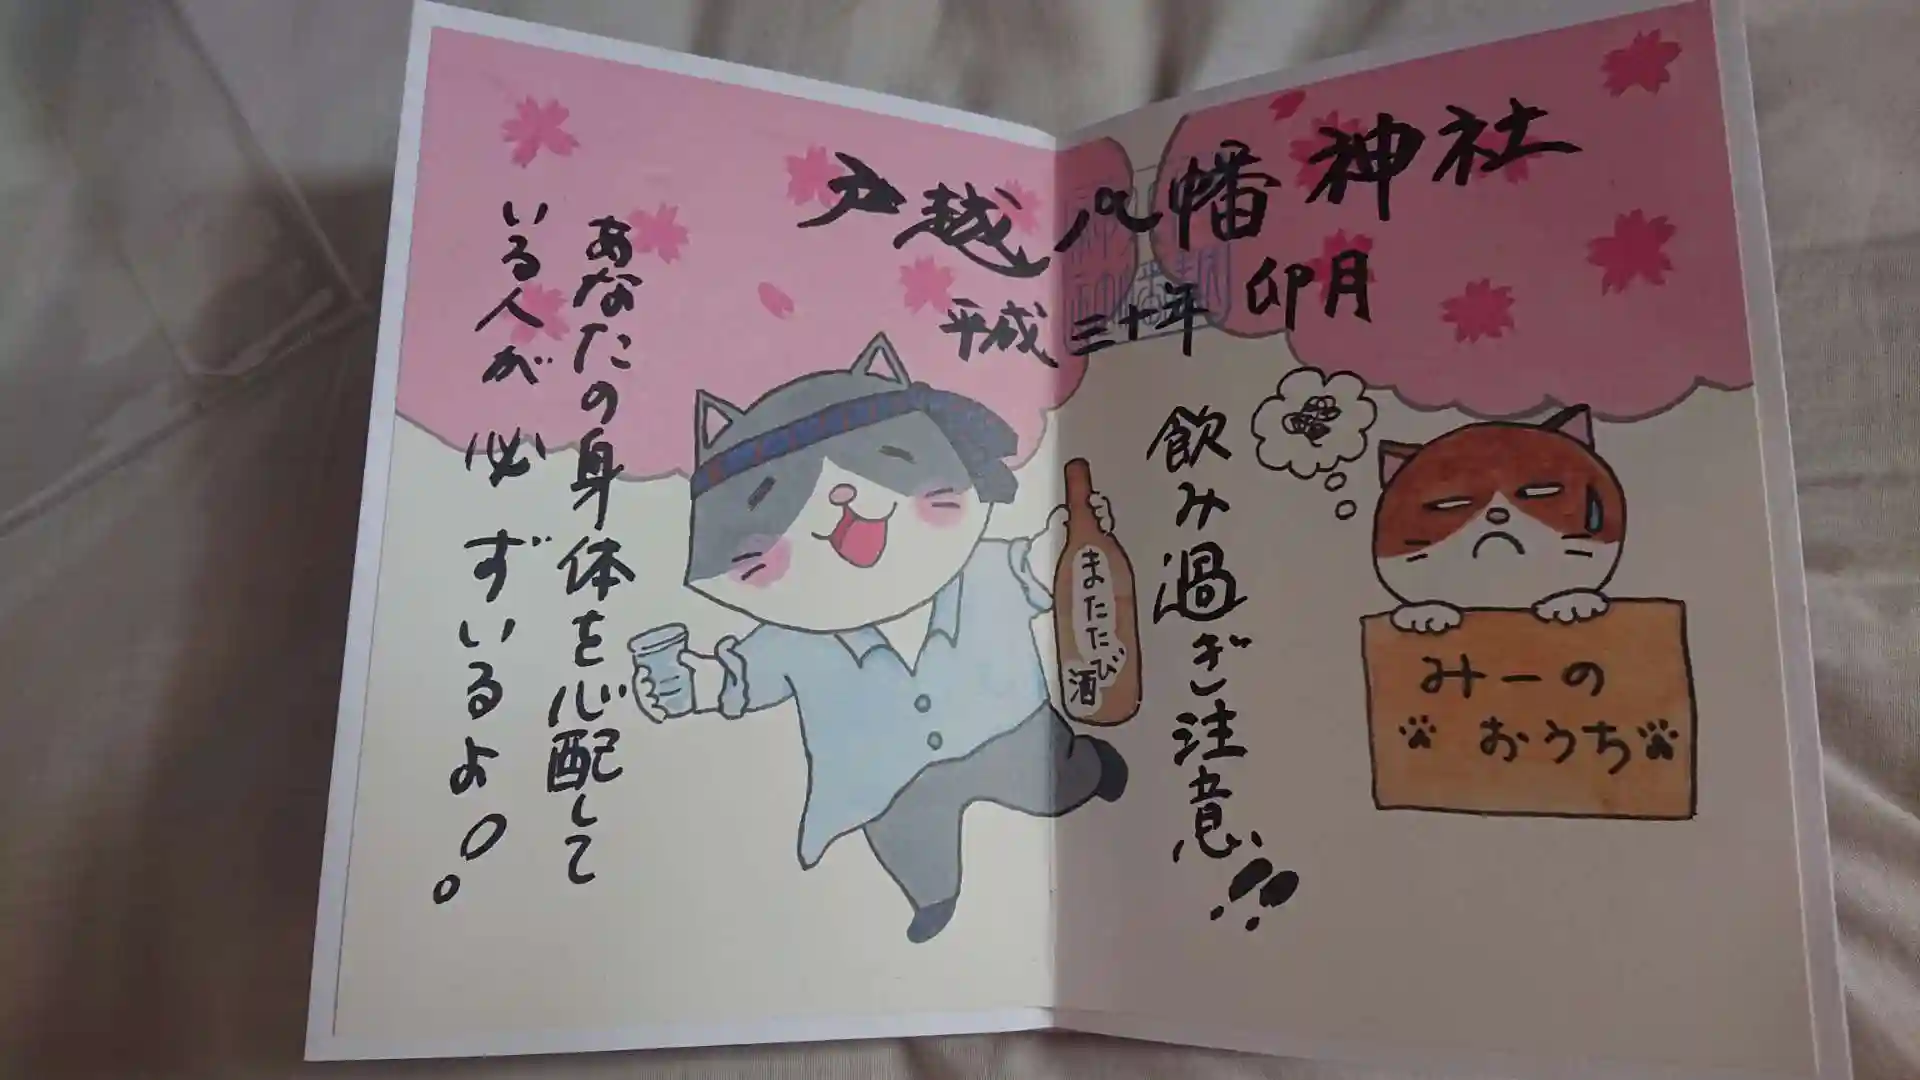 戸越八幡神社
平成三十年 卯月
飲み過ぎ注意!!
あなたの身体を心配して
いる人が必ずいるよ○。
またたび酒
みーの
おうち